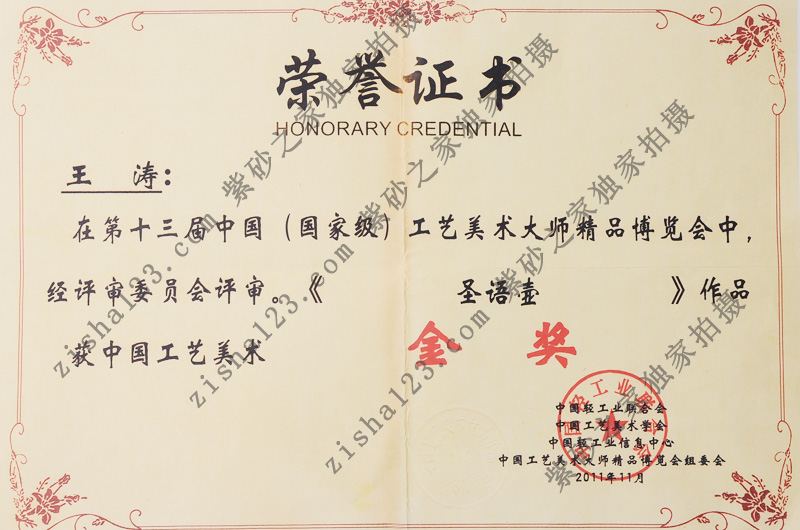 荣誉证书
HONORARY CREDENTIAL
王 涛：
在第十三届中国（国家级）工艺美术大师精品博览会中，
经评审委员会评审。《 圣语壶 》作品
获中国工艺美术 金 奖
中国轻工业联合会
中国工艺美术学会
中国轻工业信息中心
中国工艺美术大师精品博览会组委会
2011年11月
zisha123.com 紫砂之家独家拍摄
zisha123.com 紫砂之家独家拍摄
zisha123.com 紫砂之家独家拍摄